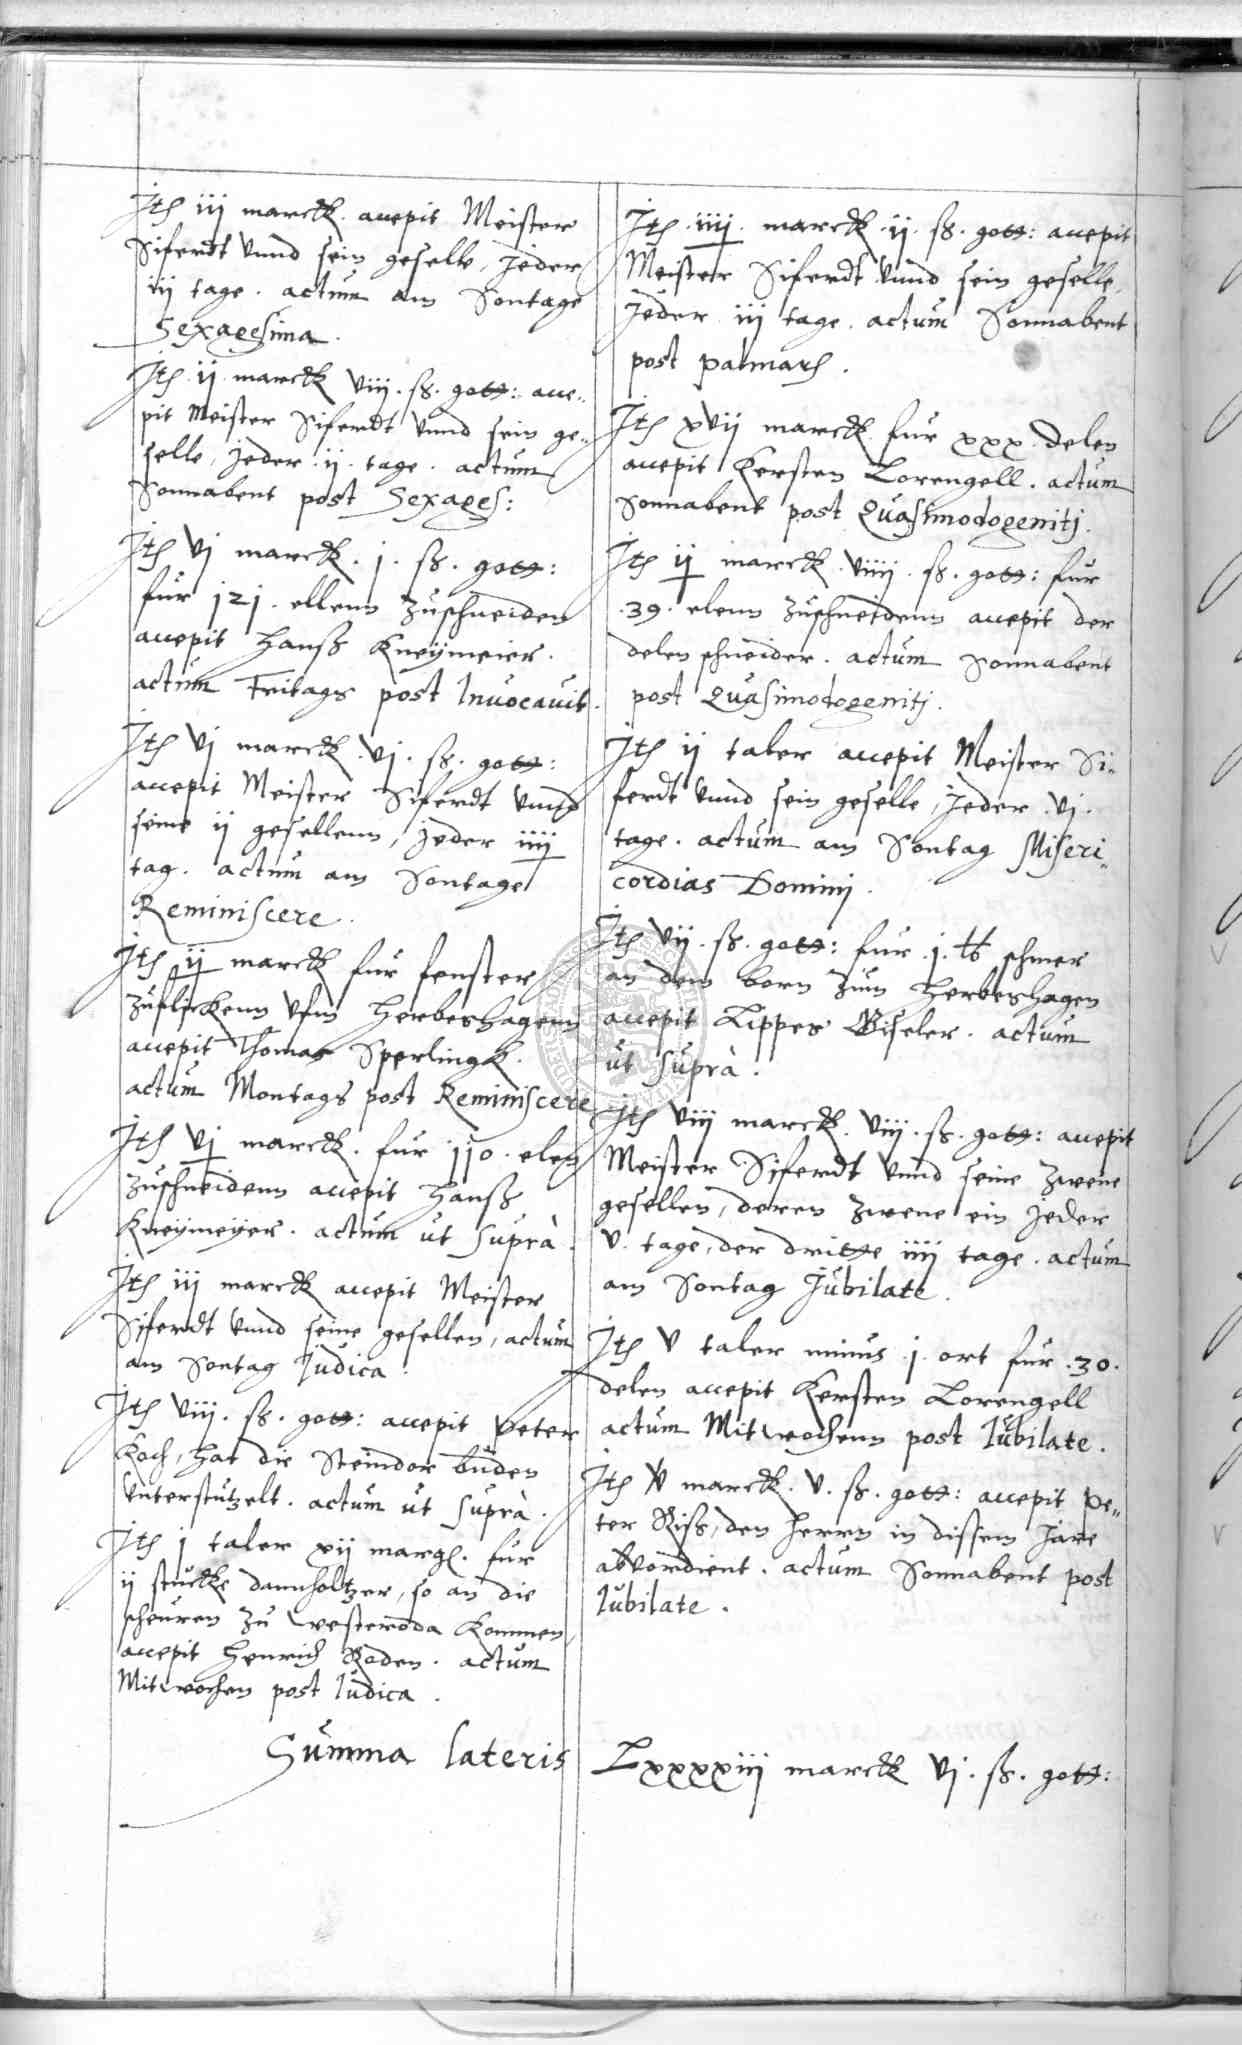 Jtem iij marckk. accepit Meister
Siferdt vnnd sein geselle, Jeder
iij tage. actum am Sontage
Sexagesima.
Jtem ij marckk viij. ß. gott: acce-
pit Meister Siferdt vnnd sein ge-
selle, Jeder ij. tage. actum
Sonnabent post Sexages:
Jtem vj marckk. j. ß. gott:
fur 121. ellenn zuschneiden
accepit Hanß Kneÿmeier.
actum Fritags post Inuocauit.
Jtem vj marckk. vj. ß. gott:
accepit Meister Siferdt vnnd
seine ij gesellenn, Jeder iiij
tag. actum am Sontage
Reminiscere.
Jtem ij marckk fur fenster
zuflickenn vfm Herbeshagenn
accepit Thomas Sperlingk.
actum Montags post Reminiscere
Jtem vj marckk. fur 110. elen
zuschneidenn accepit Hanß
Kneÿmeÿer. actum ut supra.
Jtem iij marckk accepit Meister
Siferdt vnnd seine gesellen, actum
am Sontag Iudica.
Jtem viij. ß. gott: accepit Peter
Koch, hat die Steindor buden
vnterstutzelt. actum ut supra.
Jtem j taler xij margk. fur
ij stuckke dannholtzer, so an die
scheuren zu Westeroda kommen,
accepit Henrich Roden. actum
Mitwochen post Iudica.
Jtem iiij. marckk ij. ß. gott: accepit
Meister Siferdt vnnd sein geselle,
Jeder iij tage. actum Sonnabent
post palmarum.
Jtem xvij marckk fur xxx delen
accepit Kersten Lorengell. actum
Sonnabent post Quasimodogenitj.
Jtem ij marckk. viiij. ß. gott: fur
.39. elenn zuschneidenn accepit der
delen schneider. actum Sonnabent
post Quasimodogenitj.
Jtem ij taler accepit Meister Si-
ferdt vnnd sein geselle, Jeder vj.
tage. actum am Sontag Miseri-
cordias Dominj.
Jtem vij. ß. gott: fur j. lb schmer
an dem born zum Herbeshagen
accepit Lippes Giseler. actum
ut supra.
Jtem viij marckk. viij. ß. gott: accepit
Meister Siferdt vnnd seine zwene
gesellen, deren zwene ein jeder
v. tage, der dritte iiij tage. actum
am Sontag Jubilate.
Jtem v taler minus j. ort fur .30.
delen accepit Kersten Lorengell
actum Mitwochenn post Iubilate.
Jtem v marckk. v. ß. gott: accepit Pe-
ter Riss, den Herrn in dissem Jare
abvordient. actum Sonnabent post
Iubilate.
Summa lateris Lxxxxiij marckk vj. ß. gott: